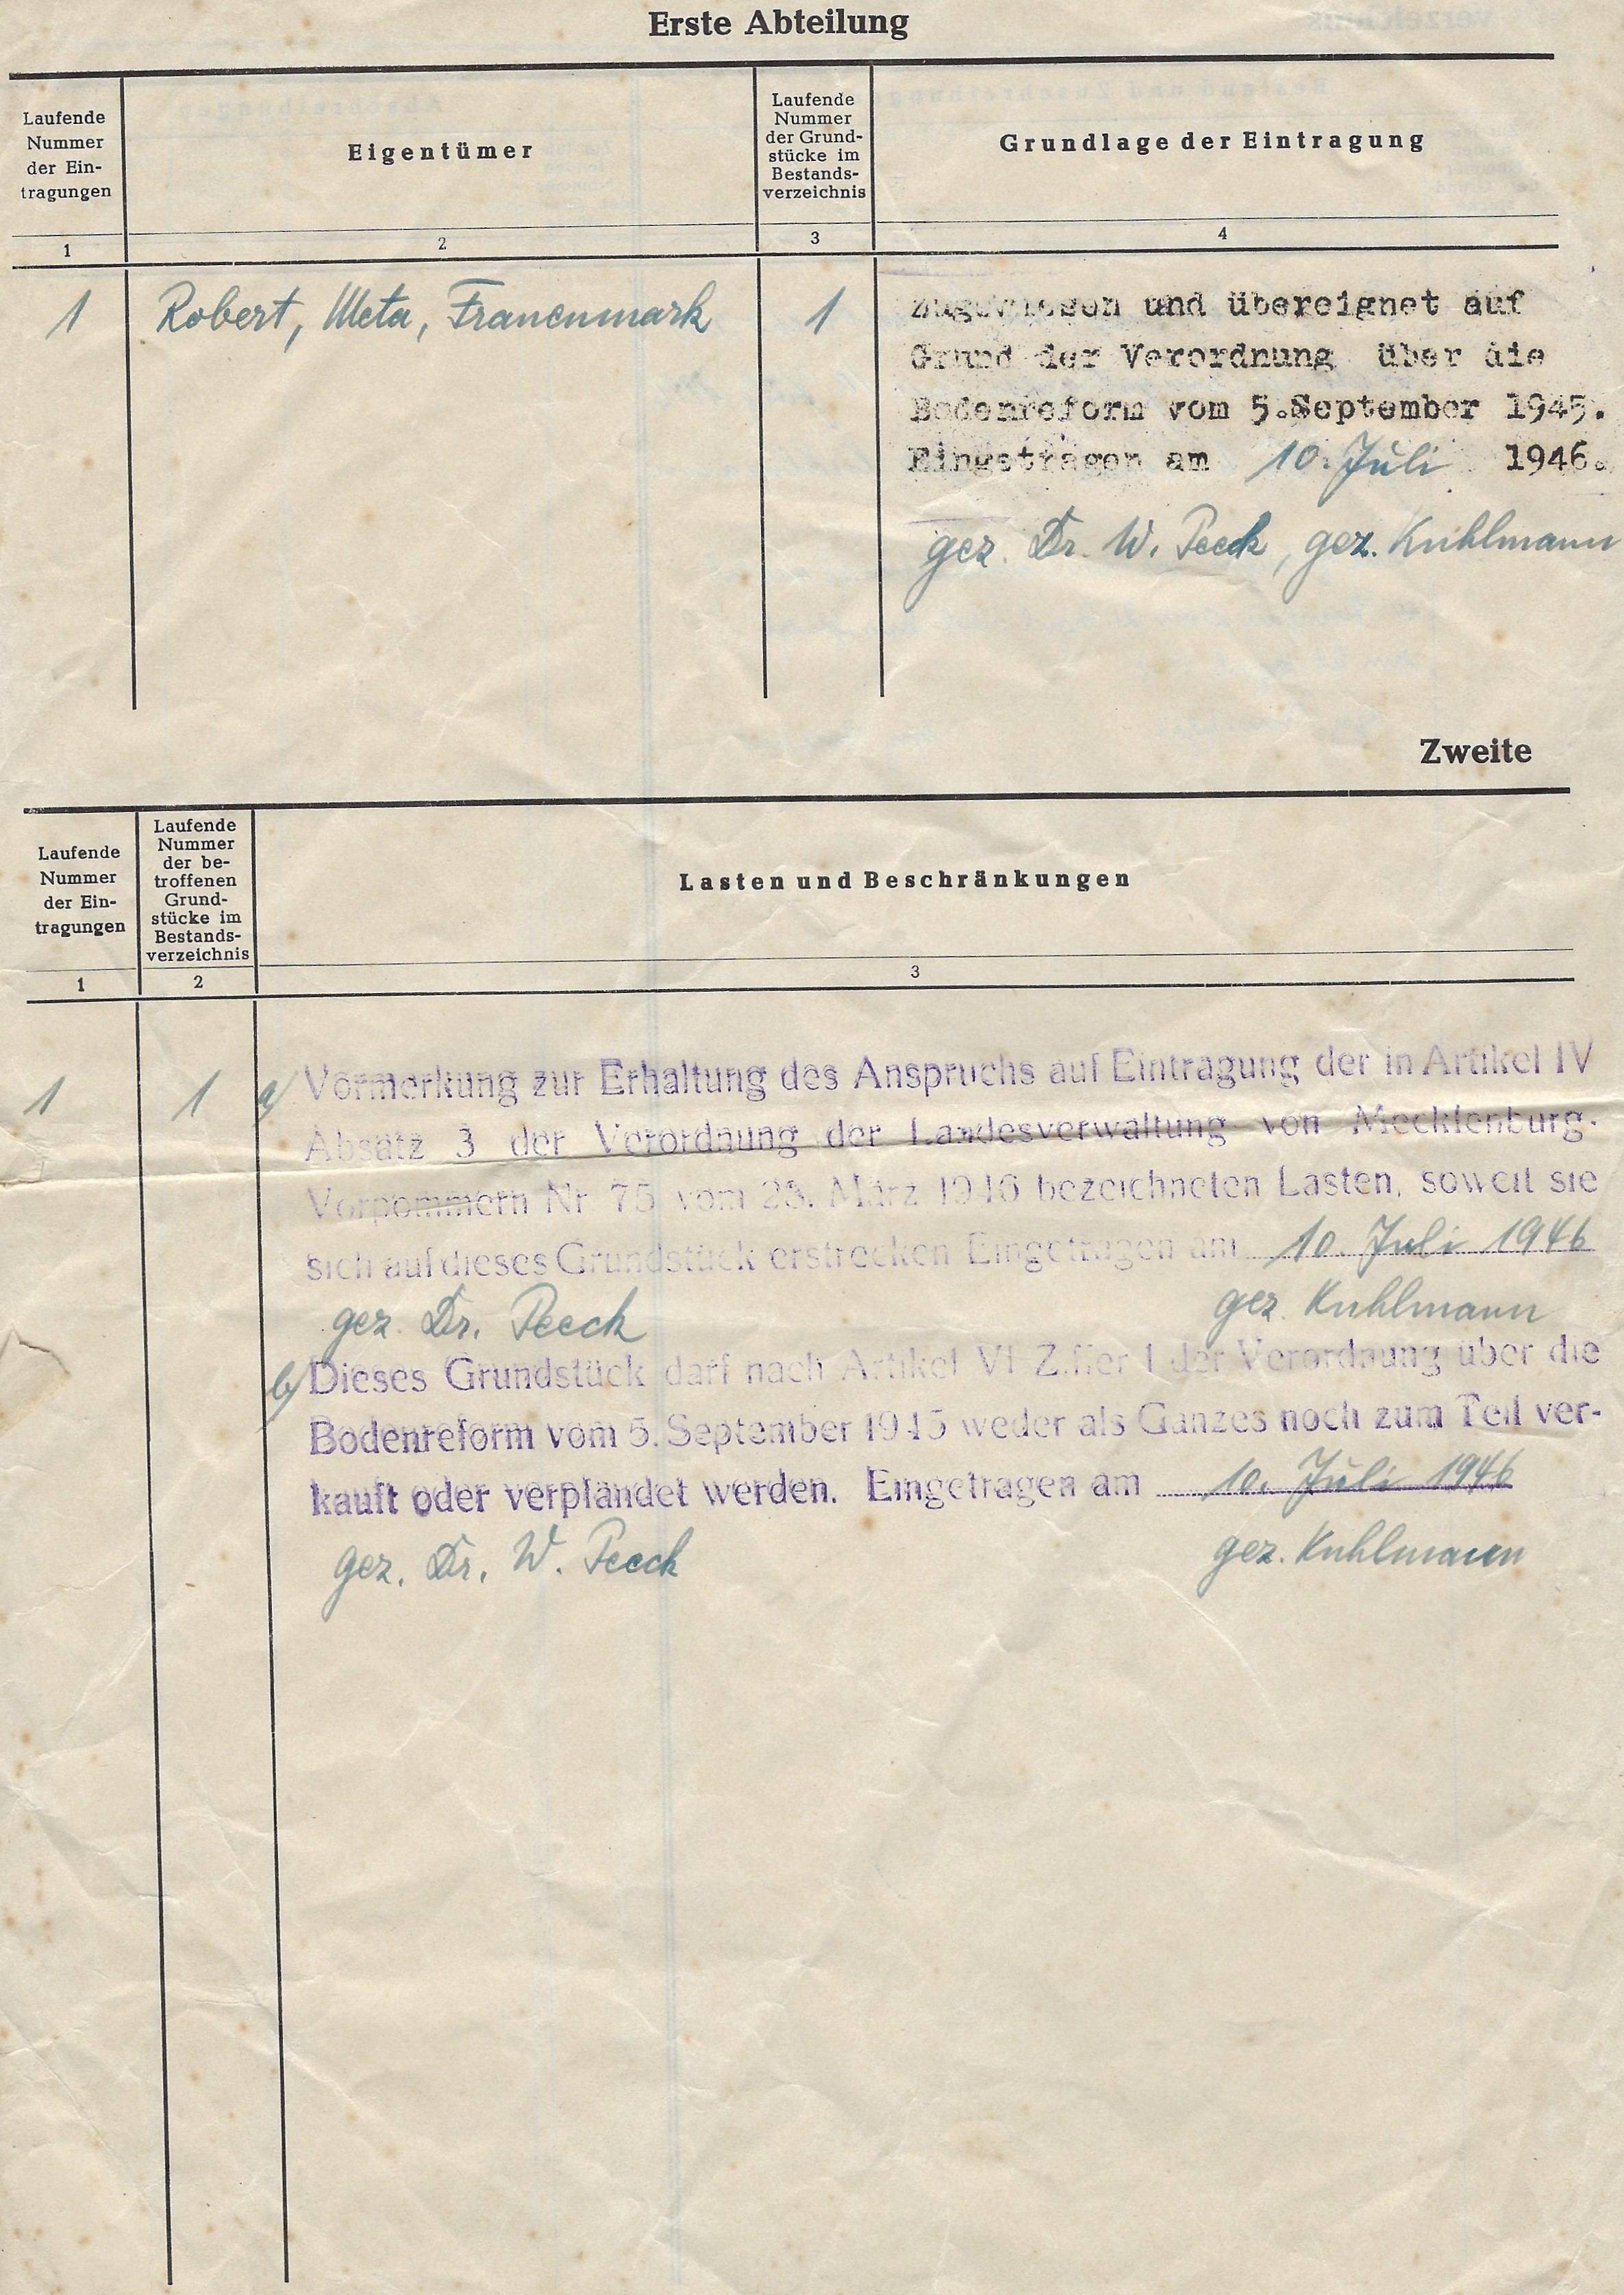 Erste Abteilung
Laufende
Nummer
der Ein-
tragungen
Eigentümer
Laufende
Nummer
der Grund-
stücke im
Bestands-
verzeichnis
Grundlage der Eintragung
1
2
3
4
1
Robert, Meta, Frauenmark
1
Zugewiesen und übereignet auf
Grund der Verordnung über die
Bodenreform vom 5.September 1945.
Eingetragen am 10. Juli 1946.
gez. Dr. W. Peeck, gez. Kuhlmann
Zweite
Laufende
Nummer
der Ein-
tragungen
Laufende
Nummer
der be-
troffenen
Grund-
stücke im
Bestands-
verzeichnis
Lasten und Beschränkungen
1
2
3
1
1
a) Vormerkung zur Erhaltung des Anspruchs auf Eintragung der in Artikel IV
Absatz 3 der Verordnung der Landesverwaltung von Mecklenburg-
Vorpommern Nr. 75 vom 23. März 1946 bezeichneten Lasten, soweit sie
sich auf dieses Grundstück erstrecken Eingetragen am 10. Juli 1946
gez. Dr. Peeck gez. Kuhlmann
b) Dieses Grundstück darf nach Artikel VI Ziffer 1 der Verordnung über die
Bodenreform vom 5. September 1945 weder als Ganzes noch zum Teil ver-
kauft oder verpfändet werden. Eingetragen am 10. Juli 1946
gez. Dr. W. Peeck gez. Kuhlmann